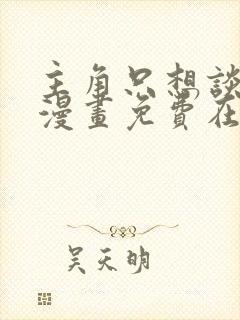 主角只想談
漫畫免費在
吳天明